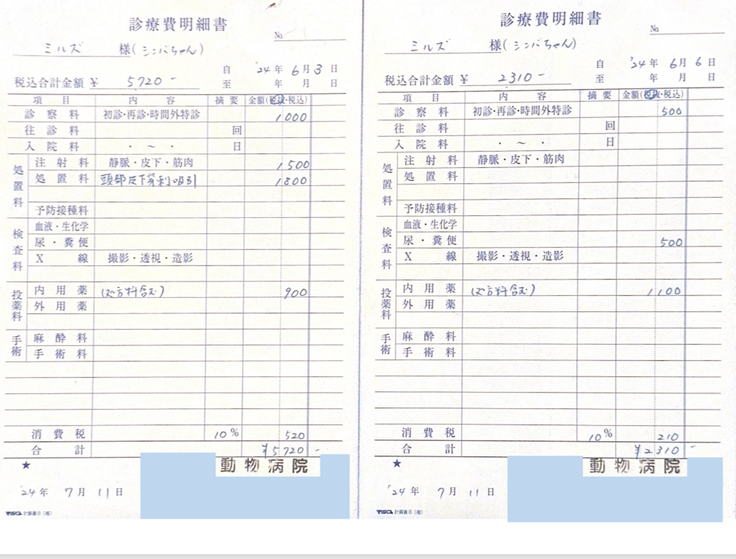 診療費明細書
No.
ミルズ 様(シンバちゃん)
自 '24年 6月 3日
税込合計金額 ¥ 5,720-
至 年 月 日
項目 内容 摘要 金額(税抜・税込)
診察料 初診・再診・時間外特診 1000
往診料 回
入院料 ・ ~ ・ 日
処置料
注射料 静脈・皮下・筋肉 1500
処置料 頭部皮下 吸引 1800
予防接種料
検査料
血液・生化学
尿・糞便
X線 撮影・透視・造影
投薬料
内用薬 (処方料含む) 900
外用薬
手術
麻酔料
手術料
消費税 10% 520
合計 ¥5720-
★ 動物病院
'24年 7月 11日
計算書B(複)
診療費明細書
No.
ミルズ 様(シンバちゃん)
自 '24年 6月 6日
税込合計金額 ¥ 2310-
至 年 月 日
項目 内容 摘要 金額(税抜・税込)
診察料 初診・再診・時間外特診 500
往診料 回
入院料 ・ ~ ・ 日
処置料
注射料 静脈・皮下・筋肉
処置料
予防接種料
検査料
血液・生化学
尿・糞便 500
X線 撮影・透視・造影
投薬料
内用薬 (処方料含む) 1100
外用薬
手術
麻酔料
手術料
消費税 10% 210
合計 ¥2310-
★ 動物病院
'24年 7月 11日
計算書B(複)